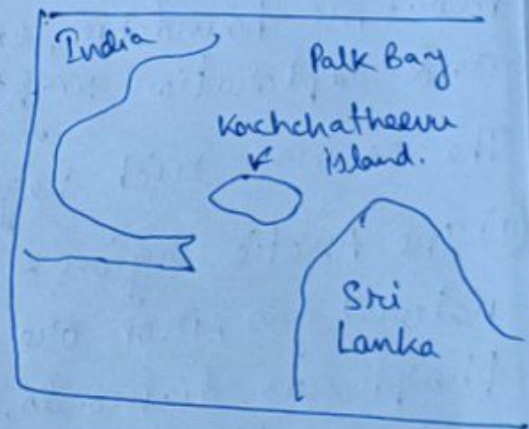 India
Palk Bay
Kachchatheevu
island.
Sri
Lanka